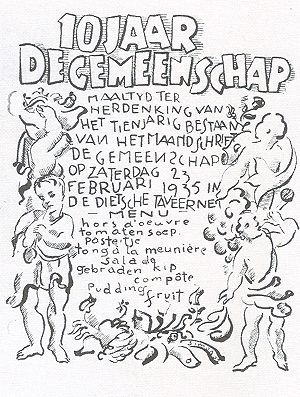 10 JAAR
DE GEMEENSCHAP
MAALTYD TER
HERDENKING VAN
HET TIENJARIG BESTAAN
VAN HET MAANDSCHRIFT
DE GEMEENSCHAP
OP ZATERDAG 23
FEBRUARI 1935 IN
DE DIETSCHE TAVEERNE
— MENU
hors d'oeuvre
tomaten soep.
pasteitje
tong à la meunière
salade
gebraden kip
compôte
pudding
fruit